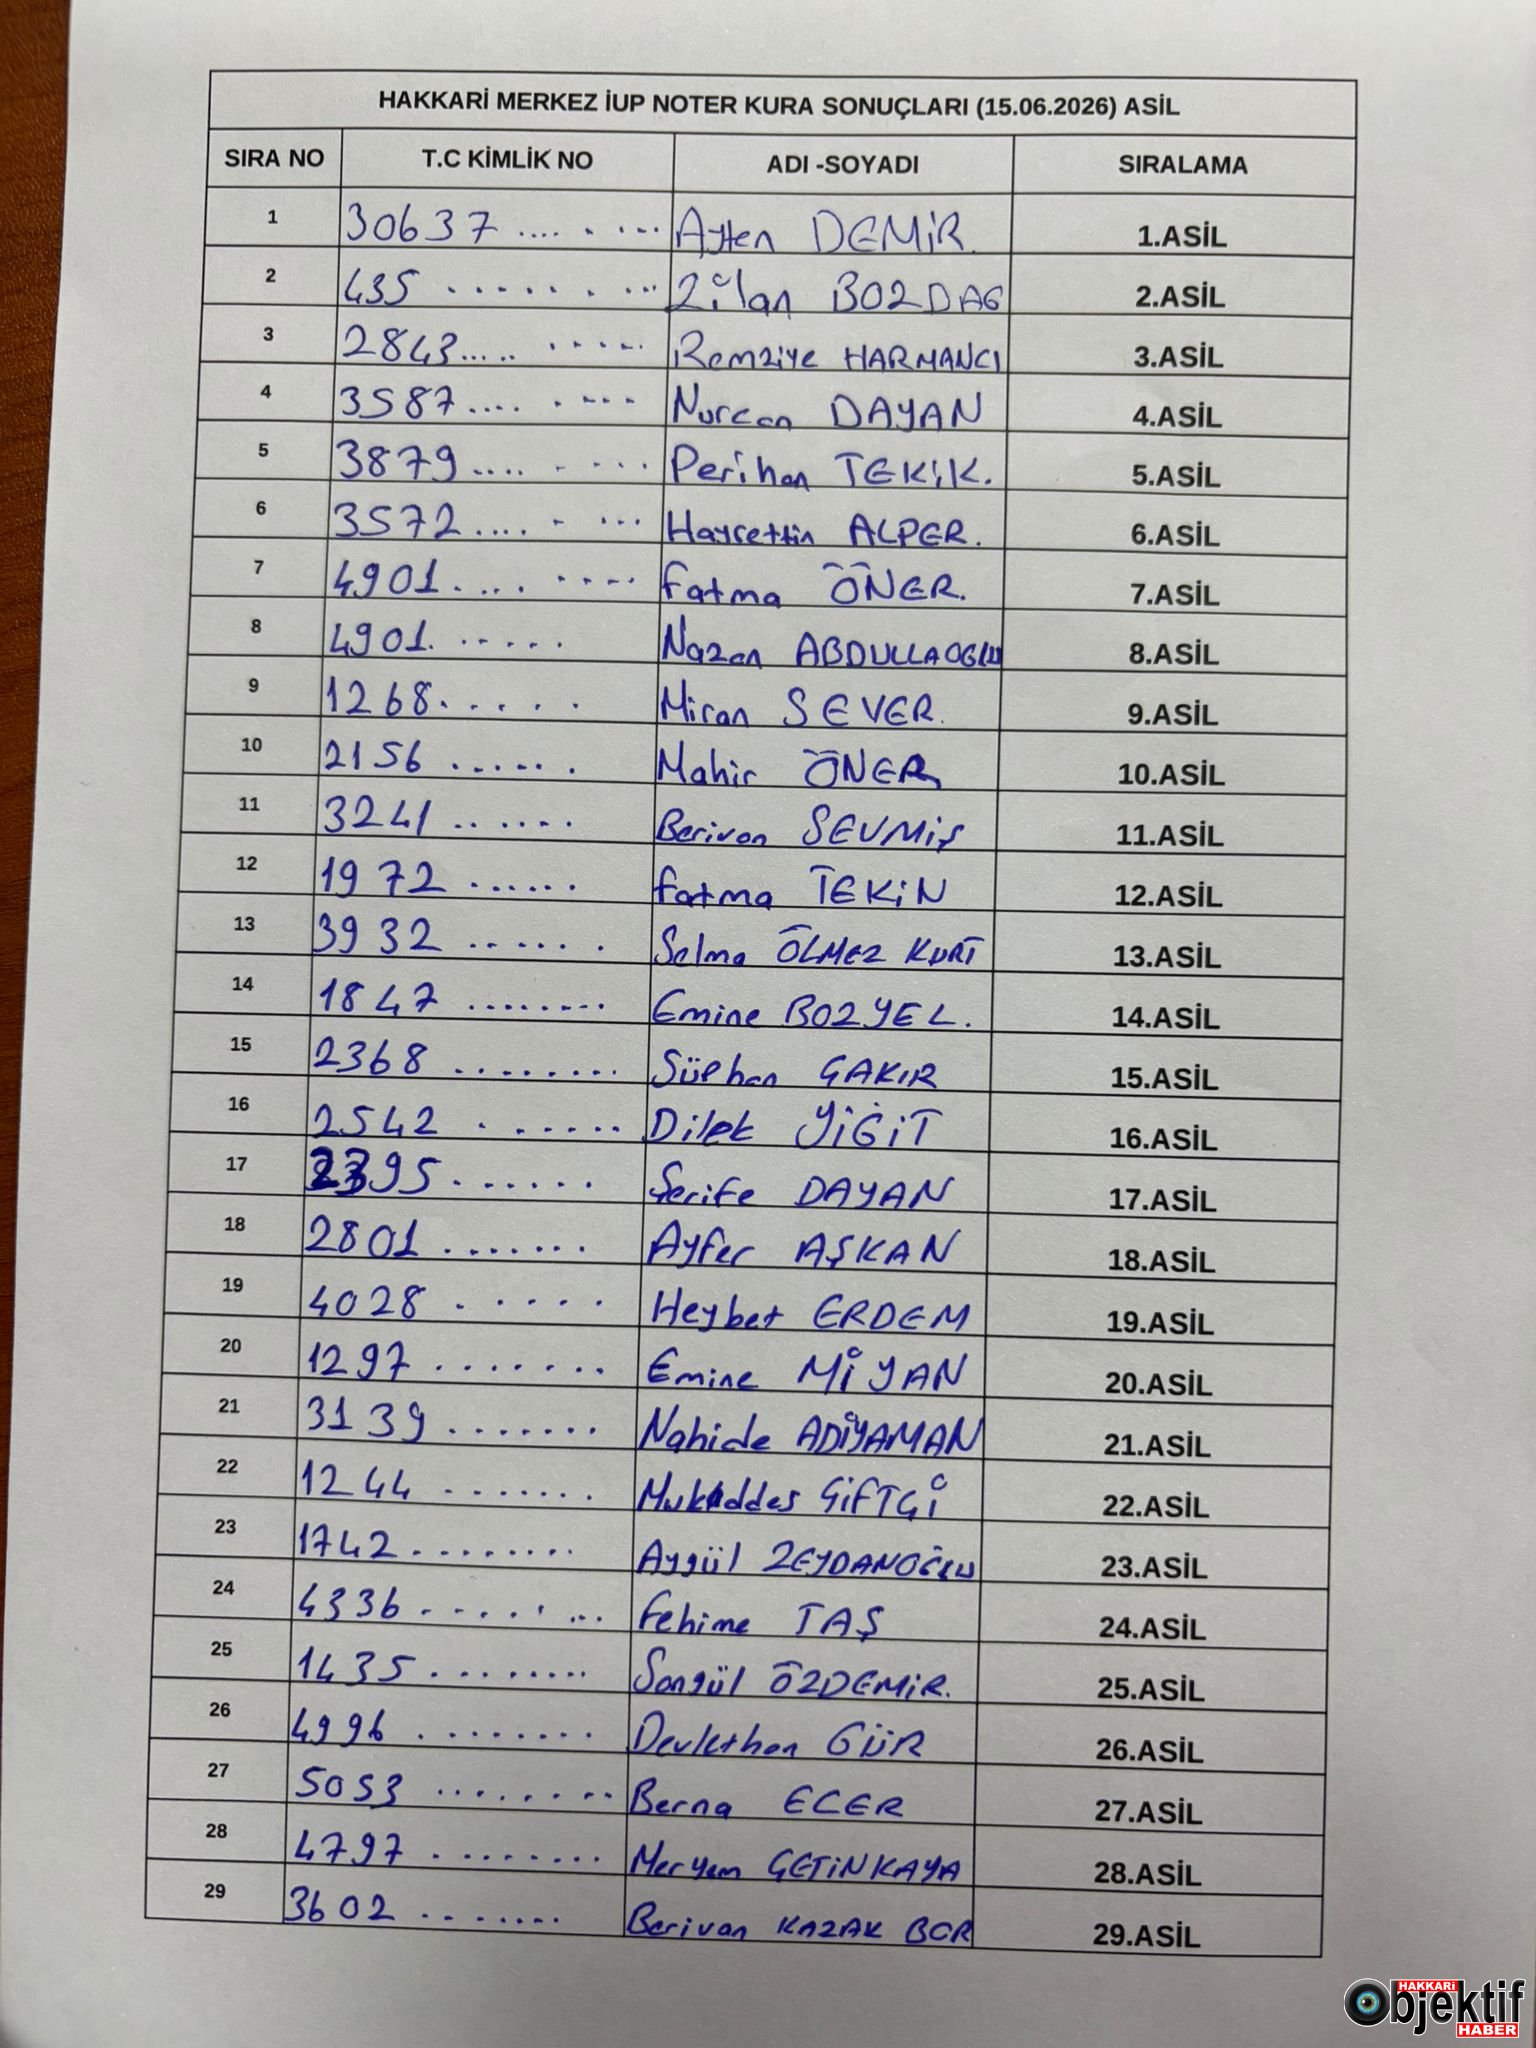 HAKKARİ MERKEZ İUP NOTER KURA SONUÇLARI (15.06.2026) ASİL
SIRA NO T.C KİMLİK NO ADI -SOYADI SIRALAMA
1 30637 .... . ... Ayten DEMİR. 1.ASİL
2 435 ...... . ... Zilan BOZDAG 2.ASİL
3 2843..... ..... Remziye HARMANCI 3.ASİL
4 3587.... . ... Nurcan DAYAN 4.ASİL
5 3879.... . ... Perihan TEKİK. 5.ASİL
6 3572.... . ... Hayrettin ALPER. 6.ASİL
7 4901. ... .... Fatma ÖNER. 7.ASİL
8 4901. ..... Nazan ABDULLAOGLU 8.ASİL
9 1268. . . . . Miran SEVER. 9.ASİL
10 2156 ...... Mahir ÖNER 10.ASİL
11 3241 ...... Berivan SEVMİŞ 11.ASİL
12 1972 ...... Fatma TEKİN 12.ASİL
13 3932 ...... Selma ÖLMEZ KURT 13.ASİL
14 1847 ........ Emine BOZYEL. 14.ASİL
15 2368 ........ Süphan ÇAKIR 15.ASİL
16 2542 . ...... Dilek YİĞİT 16.ASİL
17 95. ...... Şerife DAYAN 17.ASİL
18 2801 ....... Ayfer AŞKAN 18.ASİL
19 4028 . . . . . Heybet ERDEM 19.ASİL
20 1297 ....... Emine MİYAN 20.ASİL
21 3139 ....... Nahide ADİYAMAN 21.ASİL
22 1244 ....... Mukaddes ÇİFTÇİ 22.ASİL
23 1742 ........ Aygül ZEYDANOĞLU 23.ASİL
24 4336 ..... . ... Fehime TAŞ 24.ASİL
25 1435 ........ Songül ÖZDEMİR. 25.ASİL
26 4996 ........ Devlethan GÜR 26.ASİL
27 5053 ........ Berna ECER 27.ASİL
28 4797 ........ Meryem ÇETİNKAYA 28.ASİL
29 3602 ....... Berivan KAZAK BOR 29.ASİL
HAKKARİ
Objektif
HABER